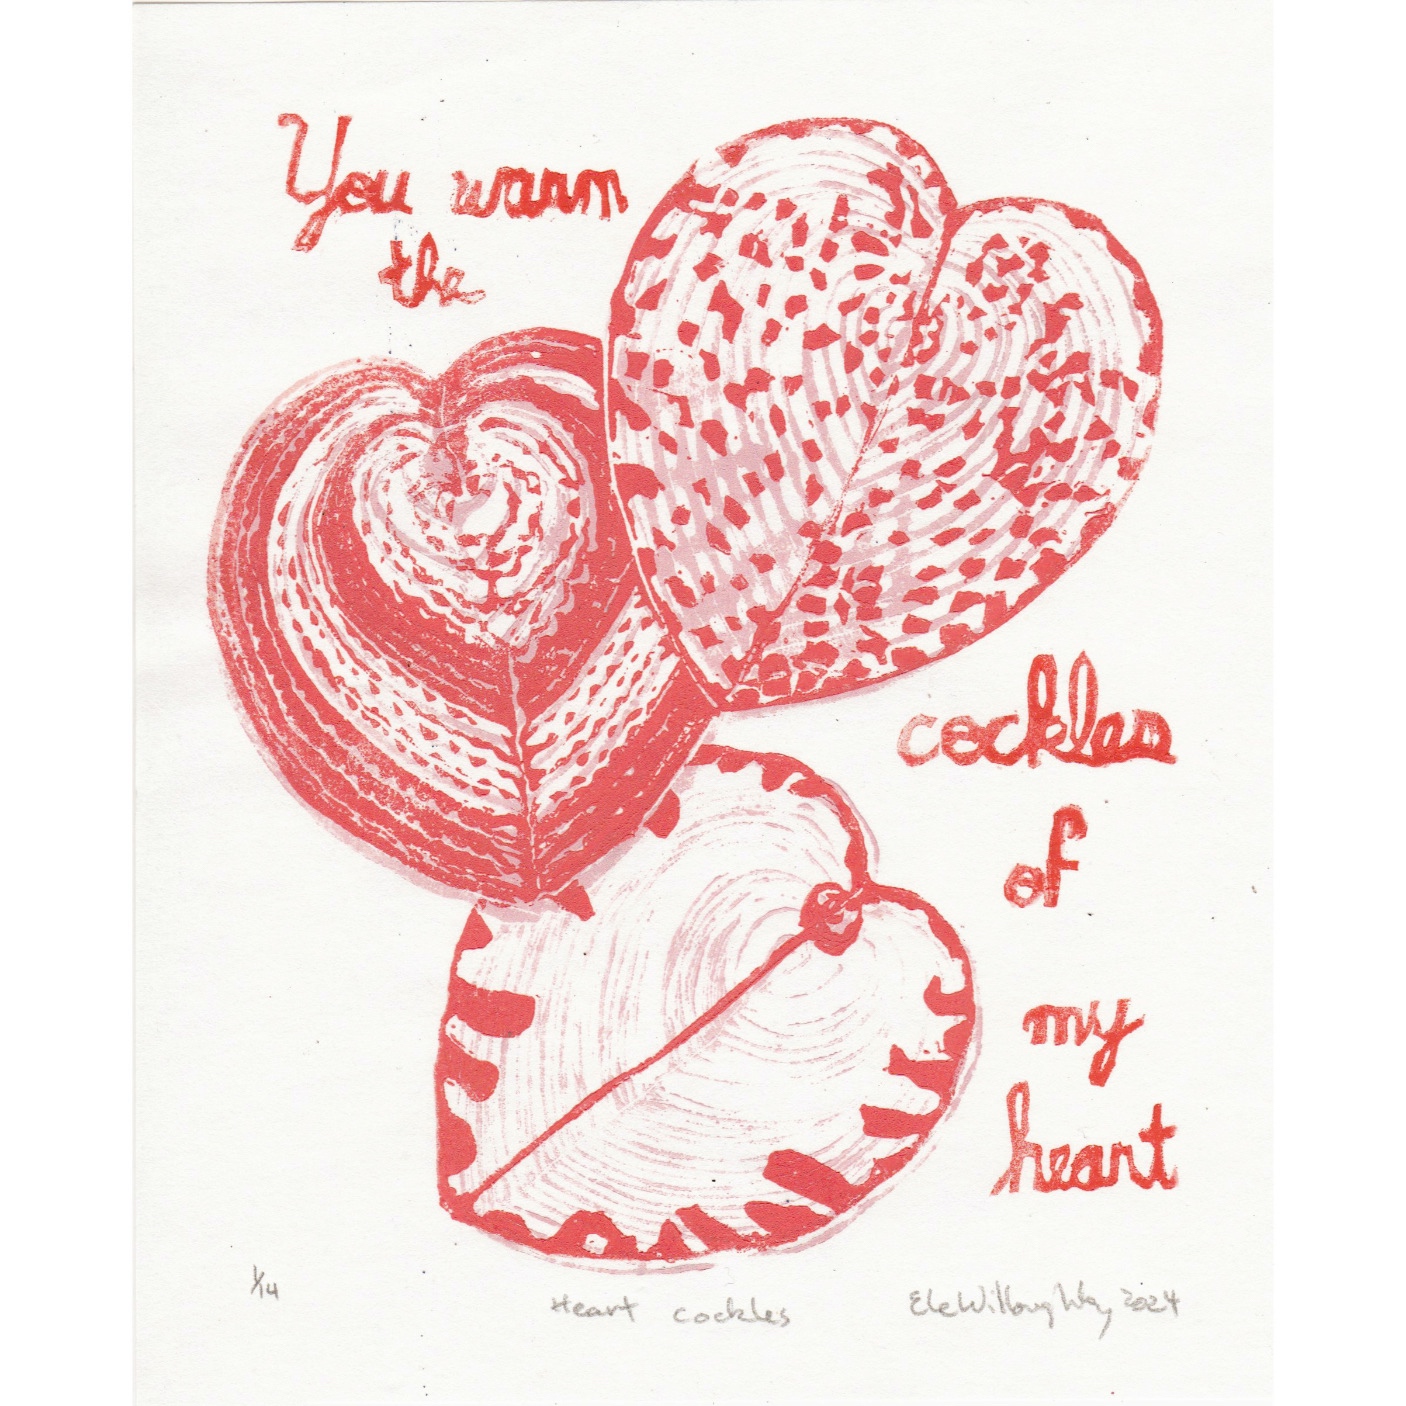 You warm
the
cockles
of
my
heart
1/14 Heart cockles Ele Willoughby 2024